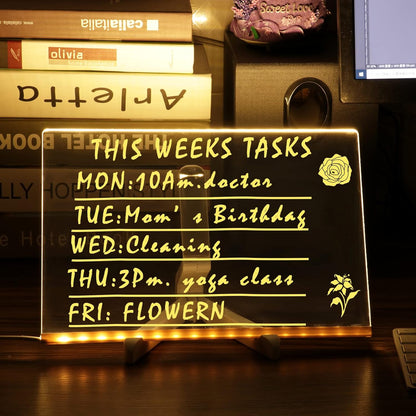 callaitalia
callaitalia
olivia
Arletta
THE HOTEL BOOK
THIS WEEKS TASKS
MON:10Am.doctor
TUE:Mom's Birthday
WED:Cleaning
THU:3Pm. yoga class
FRI: FLOWERN
Sweet Love